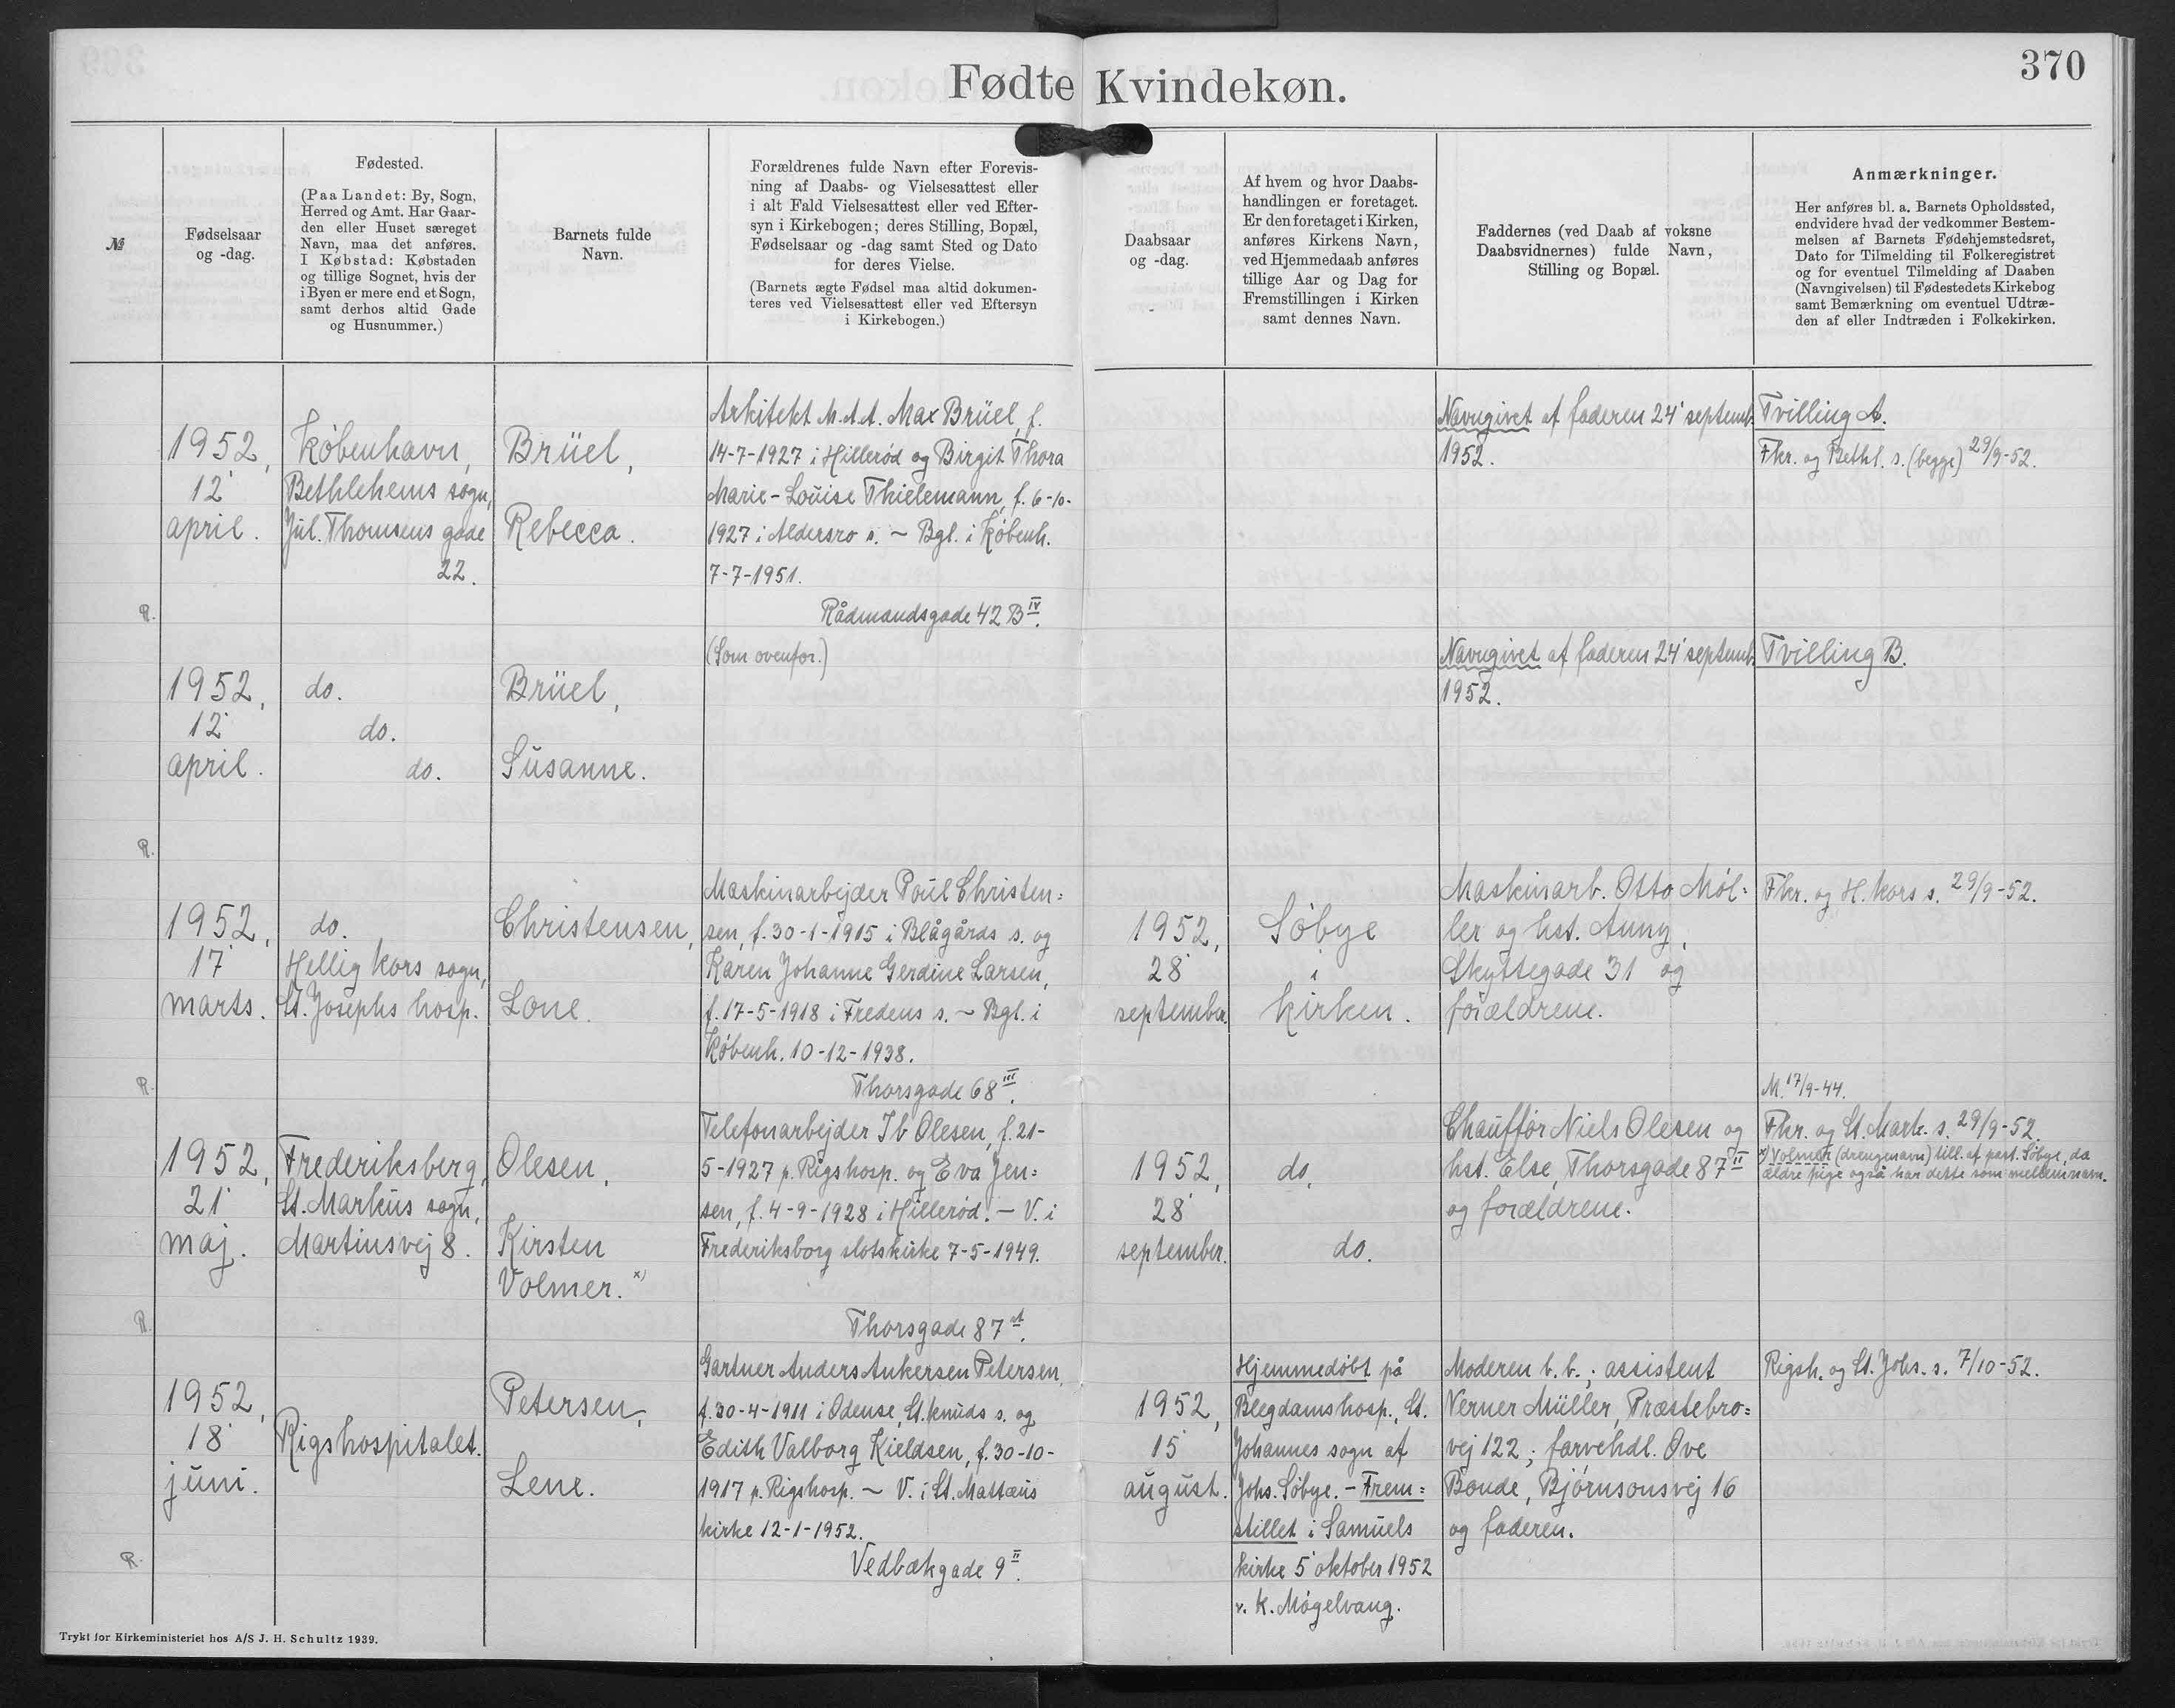 Fødte Kvindekøn.
370
№
Fødselsaar
og -dag.
Fødested.
(Paa Landet: By, Sogn,
Herred og Amt. Har Gaar-
den eller Huset særeget
Navn, maa det anføres.
I Købstad: Købstaden
og tillige Sognet, hvis der
i Byen er mere end et Sogn,
samt derhos altid Gade
og Husnummer.)
Barnets fulde
Navn.
Forældrenes fulde Navn efter Forevis-
ning af Daabs- og Vielsesattest eller
i alt Fald Vielsesattest eller ved Efter-
syn i Kirkebogen; deres Stilling, Bopæl,
Fødselsaar og -dag samt Sted og Dato
for deres Vielse.
(Barnets ægte Fødsel maa altid dokumen-
teres ved Vielsesattest eller ved Eftersyn
i Kirkebogen.)
Daabsaar
og -dag.
Af hvem og hvor Daabs-
handlingen er foretaget.
Er den foretaget i Kirken,
anføres Kirkens Navn,
ved Hjemmedaab anføres
tillige Aar og Dag for
Fremstillingen i Kirken
samt dennes Navn.
Faddernes (ved Daab af voksne
Daabsvidnernes) fulde Navn,
Stilling og Bopæl.
Anmærkninger.
Her anføres bl. a. Barnets Opholdssted,
endvidere hvad der vedkommer Bestem-
melsen af Barnets Fødehjemstedsret,
Dato for Tilmelding til Folkeregistret
og for eventuel Tilmelding af Daaben
(Navngivelsen) til Fødestedets Kirkebog
samt Bemærkning om eventuel Udtræ-
den af eller Indtræden i Folkekirken.
R.
1952,
12'
april.
København,
Bethlehems sogn,
Jul. Thomsens gade
22.
Brüel,
Rebecca.
Arkitekt M.A.A. Max Brüel, f.
14-7-1927 i Hillerød og Birgit Thora
Marie-Louise Thielemann, f. 6-10-
1927 i Aldersro s. ~ Bgl. i Københ.
7-7-1951.
Rådmandsgade 42 B IV.
Navngivet af faderen 24' septemb.
1952.
Tvilling A.
Fkr. og Bethl. s. (begge) 29/9-52.
R.
1952,
12'
april.
do.
do.
do.
Brüel,
Susanne.
(Som ovenfor.)
Navngivet af faderen 24' septemb.
1952.
Tvilling B.
R.
1952,
17'
marts.
do.
Hellig Kors sogn,
St. Josephs hosp.
Christensen,
Lone.
Maskinarbejder Poul Christen=
sen, f. 30-1-1915 i Blågårds s. og
Karen Johanne Gerdine Larsen,
f. 17-5-1918 i Fredens s. ~ Bgl. i
Københ. 10-12-1938.
Thorsgade 68 III.
1952,
28'
september.
Søbye
i
kirken.
Maskinarb. Otto Møl=
ler og hst. Anny,
Skyttegade 31 og
forældrene.
Fkr. og H. Kors s. 29/9-52.
R.
1952,
21'
maj.
Frederiksberg,
St. Markus sogn,
Martinsvej 8.
Olesen,
Kirsten
Volmer. x)
Telefonarbejder Ib Olesen, f. 21-
5-1927 p. Rigshosp. og Eva Jen=
sen, f. 4-9-1928 i Hillerød. - V. i
Frederiksborg slotskirke 7-5-1949.
Thorsgade 87 st.
1952,
28'
september.
do.
do.
Chauffør Niels Olesen og
hst. Else, Thorsgade 87 II
og forældrene.
M. 17/9-44.
Fkr. og St. Mark. s. 29/9-52.
x) Volmer (drengenavn) till. af past. Søbye, da
ældre pige også har dette som mellemnavn.
R.
1952,
18'
juni.
Rigshospitalet.
Petersen,
Lene.
Gartner Anders Ankersen Petersen,
f. 30-4-1911 i Odense, St. Knuds s. og
Edith Valborg Kieldsen, f. 30-10-
1917 p. Rigshosp. ~ V. i St. Mattæus
kirke 12-1-1952.
Vedbækgade 9 II.
1952,
15'
august.
Hjemmedøbt på
Blegdamshosp., St.
Johannes sogn af
Johs. Søbye. - Frem=
stillet i Samuels
kirke 5' oktober 1952
v. K. Møgelvang.
Moderen b. b.; assistent
Verner Müller, Præstebro=
vej 122; farvehdl. Ove
Bonde, Bjørnsonsvej 16
og faderen.
Rigsh. og St. Johs. s. 7/10-52.
Trykt for Kirkeministeriet hos A/S J. H. Schultz 1939.